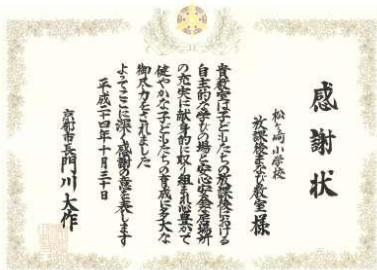 感謝状
松ヶ崎小学校
放課後まなび教室 様
貴教室は子どもたちの放課後における
自主的な学びの場と安心安全な居場所
の充実に献身的に取り組まれ心豊かで
健やかな子どもたちの育成に多大な
御尽力をされました
よってここに深く感謝の意を表します
平成二十四年十月三十日
京都市長 門川大作